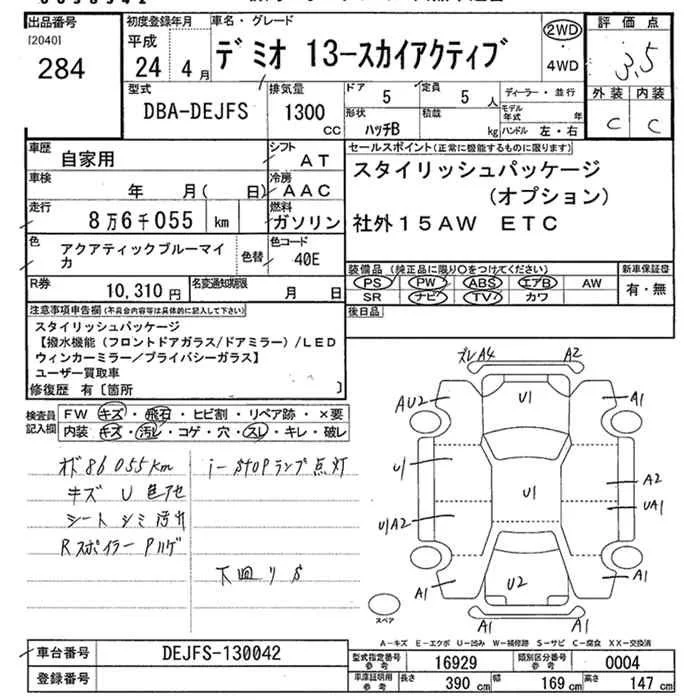 出品番号
[2040]
284
初度登録年月
平成
24年4月
車名・グレード
デミオ 13-スカイアクティブ
2WD
・
4WD
評価点
3.5
外装 内装
C C
型式
DBA-DEJFS
排気量
1300
CC
ドア
5
定員
5人
形状
ハッチB
積載
kg
ディーラー・並行
モデル年式 年
ハンドル 左・右
車歴
自家用
シフト
AT
車検
年 月( 日)
冷房
AAC
走行
8万6千055 km
燃料
ガソリン
色
アクアティックブルーマイカ
色替
色コード
40E
R券
10,310円
名変通知期限
月 日
セールスポイント(正常に機能するものに限ります)
スタイリッシュパッケージ
(オプション)
社外15AW ETC
装備品(純正品に限り○をつけてください)
PS PW ABS エアB AW
SR ナビ TV カワ
新車保証書
有・無
後日品
注意事項申告欄(不具合内容等は具体的に記入して下さい)
スタイリッシュパッケージ
【撥水機能(フロントドアガラス/ドアミラー)/LED
ウィンカーミラー/プライバシーガラス】
ユーザー買取車
修復歴 有〔箇所 〕
検査員記入欄
FW キズ・飛石・ヒビ割・リペア跡・×要
内装 キズ・汚レ・コゲ・穴・スレ・キレ・破レ
メド86055km
キズ U 色セ
シート シミ 汚レ
Rスポイラー Pハゲ
i-STOPランプ点灯
下廻りS
ズレA4 A2
AU2 U1 A1
U1 A2
U1 UA1
U1A2
A1 U2 A1
A1 A1
スペア
A-キズ E-エクボ U-凹み W-補修跡 S-サビ C-腐食 XX-交換済
車台番号
DEJFS-130042
登録番号
型式指定番号
参考
16929
類別区分番号
参考
0004
車庫証明用
参考
長さ
390 cm
幅
169 cm
高さ
147 cm